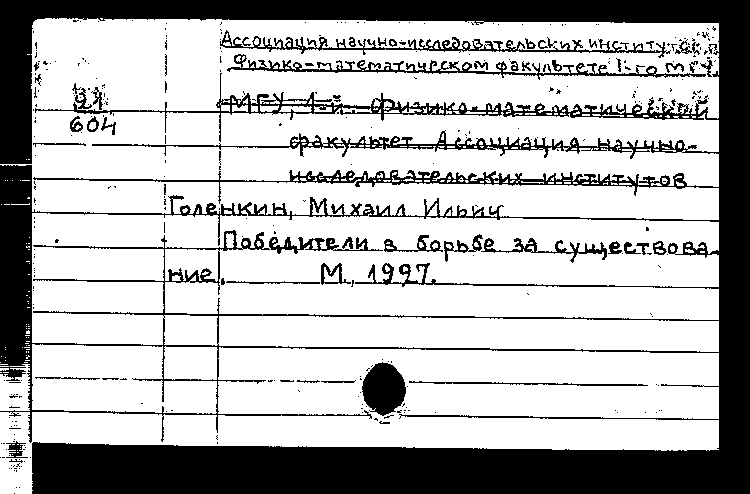 Ассоциация научно-исследовательских институтов п
Физико-математическом факультете 1-го МГУ.
21
604
МГУ, 1-й. физико-математический
факультет. Ассоциация научно-
исследовательских институтов
Голенкин, Михаил Ильич
Победители в борьбе за существова-
ние. М., 1927.